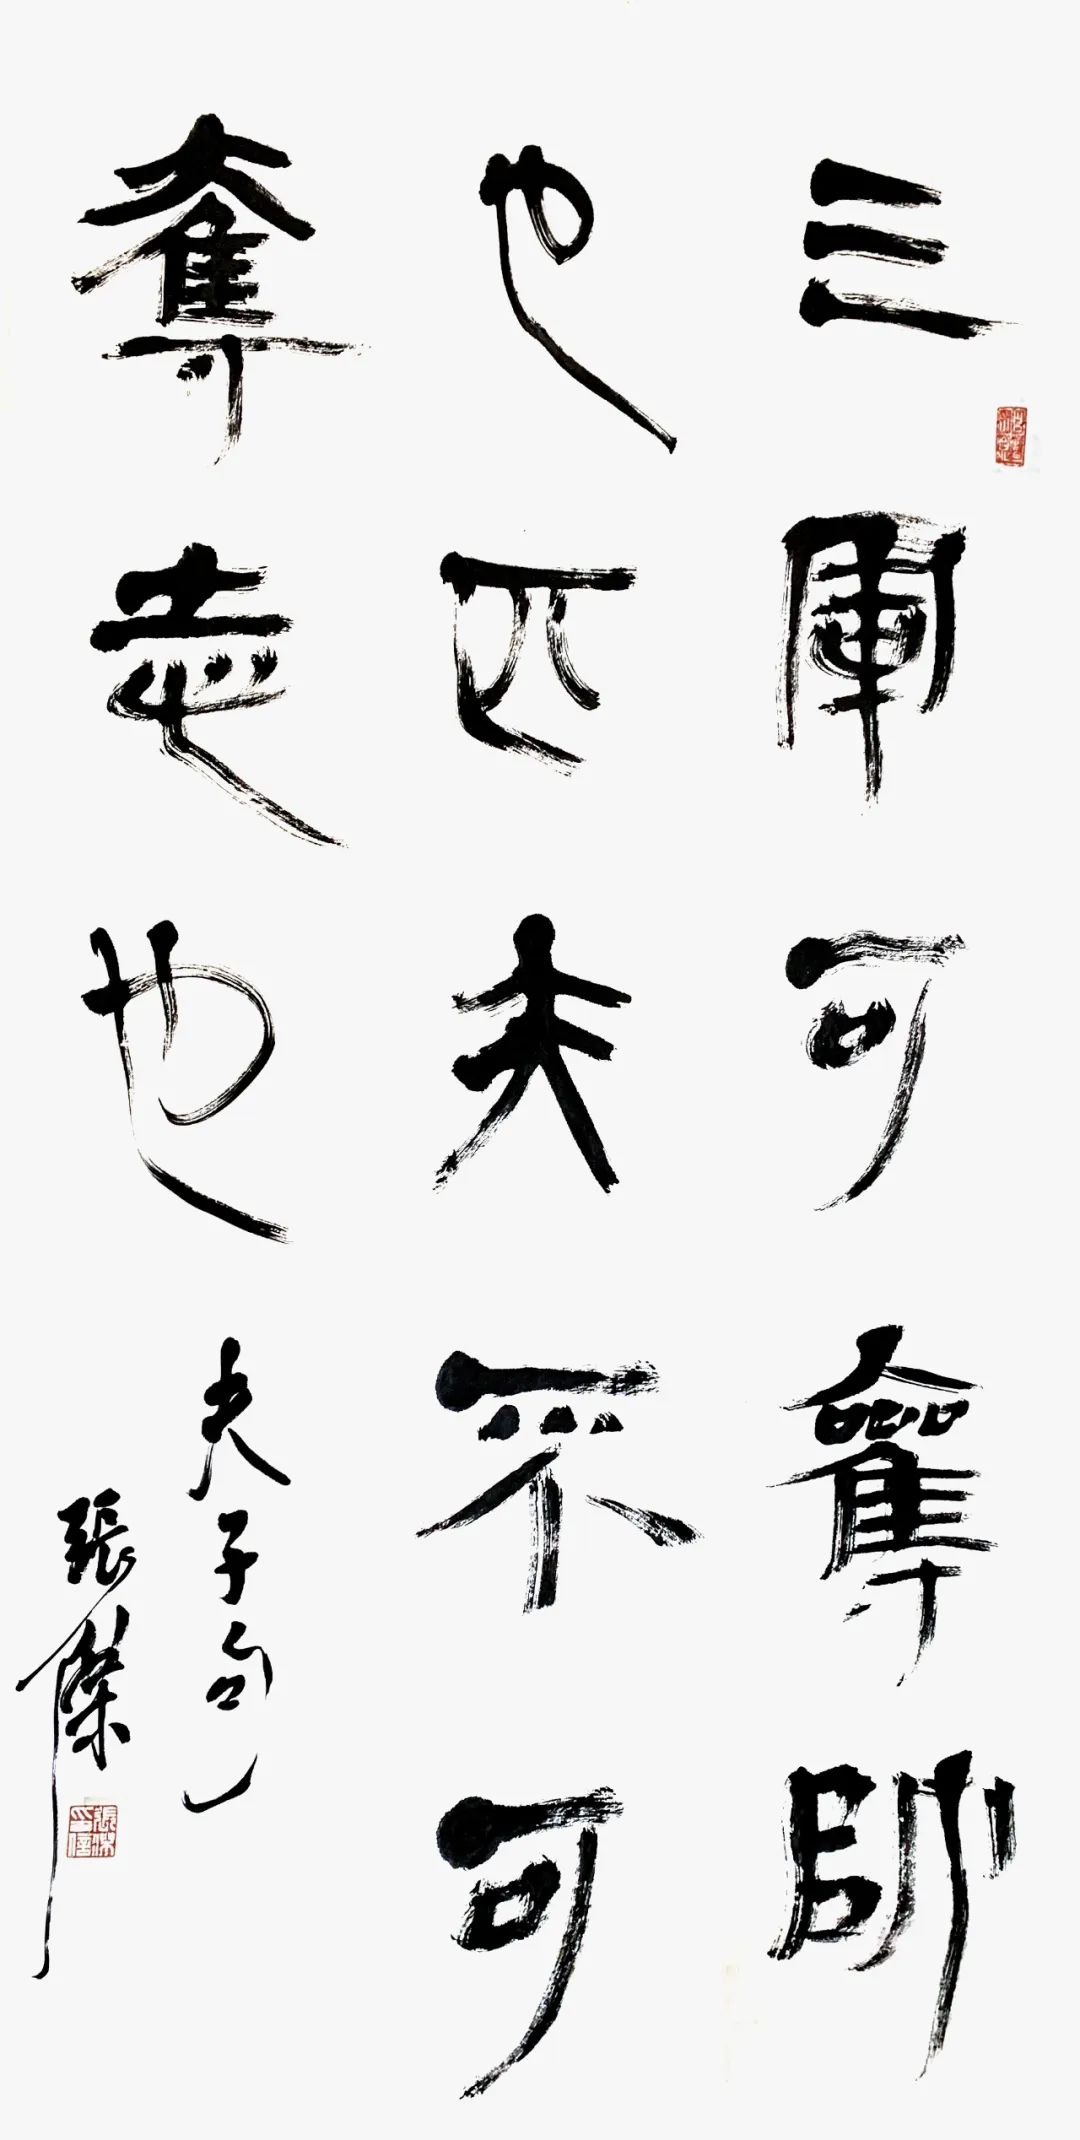 三軍可奪帥
也匹夫不可
奪志也
夫子句
張傑
張傑